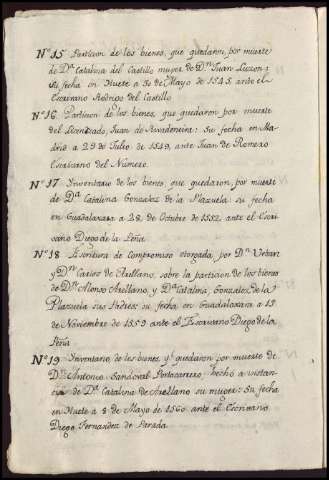 Nº 15 Particion de los bienes, que quedaron por muerte
de Dª Catalina del Castillo muger de Dⁿ Juan Luzon:
su fecha en Huete a 30 de Mayo de 1545. ante el
Escrivano Rodrigo del Castillo
Nº 16 Particion de los bienes, que quedaron por muerte
del Licenciado, Juan de Rivadeneira: Su fecha en Ma-
drid a 29 de Julio de 1549. ante Juan de Romero
Escrivano del Número.
Nº 17 Inventario de los bienes, que quedaron, por muerte
de Dª Catalina Gonzalez de la Plazuela su fecha
en Guadalaxara a 28 de Octubre de 1552. ante el Escri-
vano Diego de la Peña
Nº 18 Escritura de Compromiso otorgada, por Dⁿ
y Dⁿ Carlos de Arellano, sobre la particion de los bienes
de Dⁿ Alonso Arellano, y Dª Catalina, Gonzalez de la
Plazuela sus Padres: su fecha en Guadalaxara a 15
de Noviembre de 1553 ante el Escrivano Diego de la
Peña
Nº 19 Inventario, de los bienes, y qº quedaron por muerte de
Dⁿ Antonio Sandoval Portocarrero, hecho a instan-
cia de Dª Catalina de Arellano su muger: Su fecha
en Huete a 8 de Mayo de 1560. ante el Escrivano
Diego Fernandez de Parada